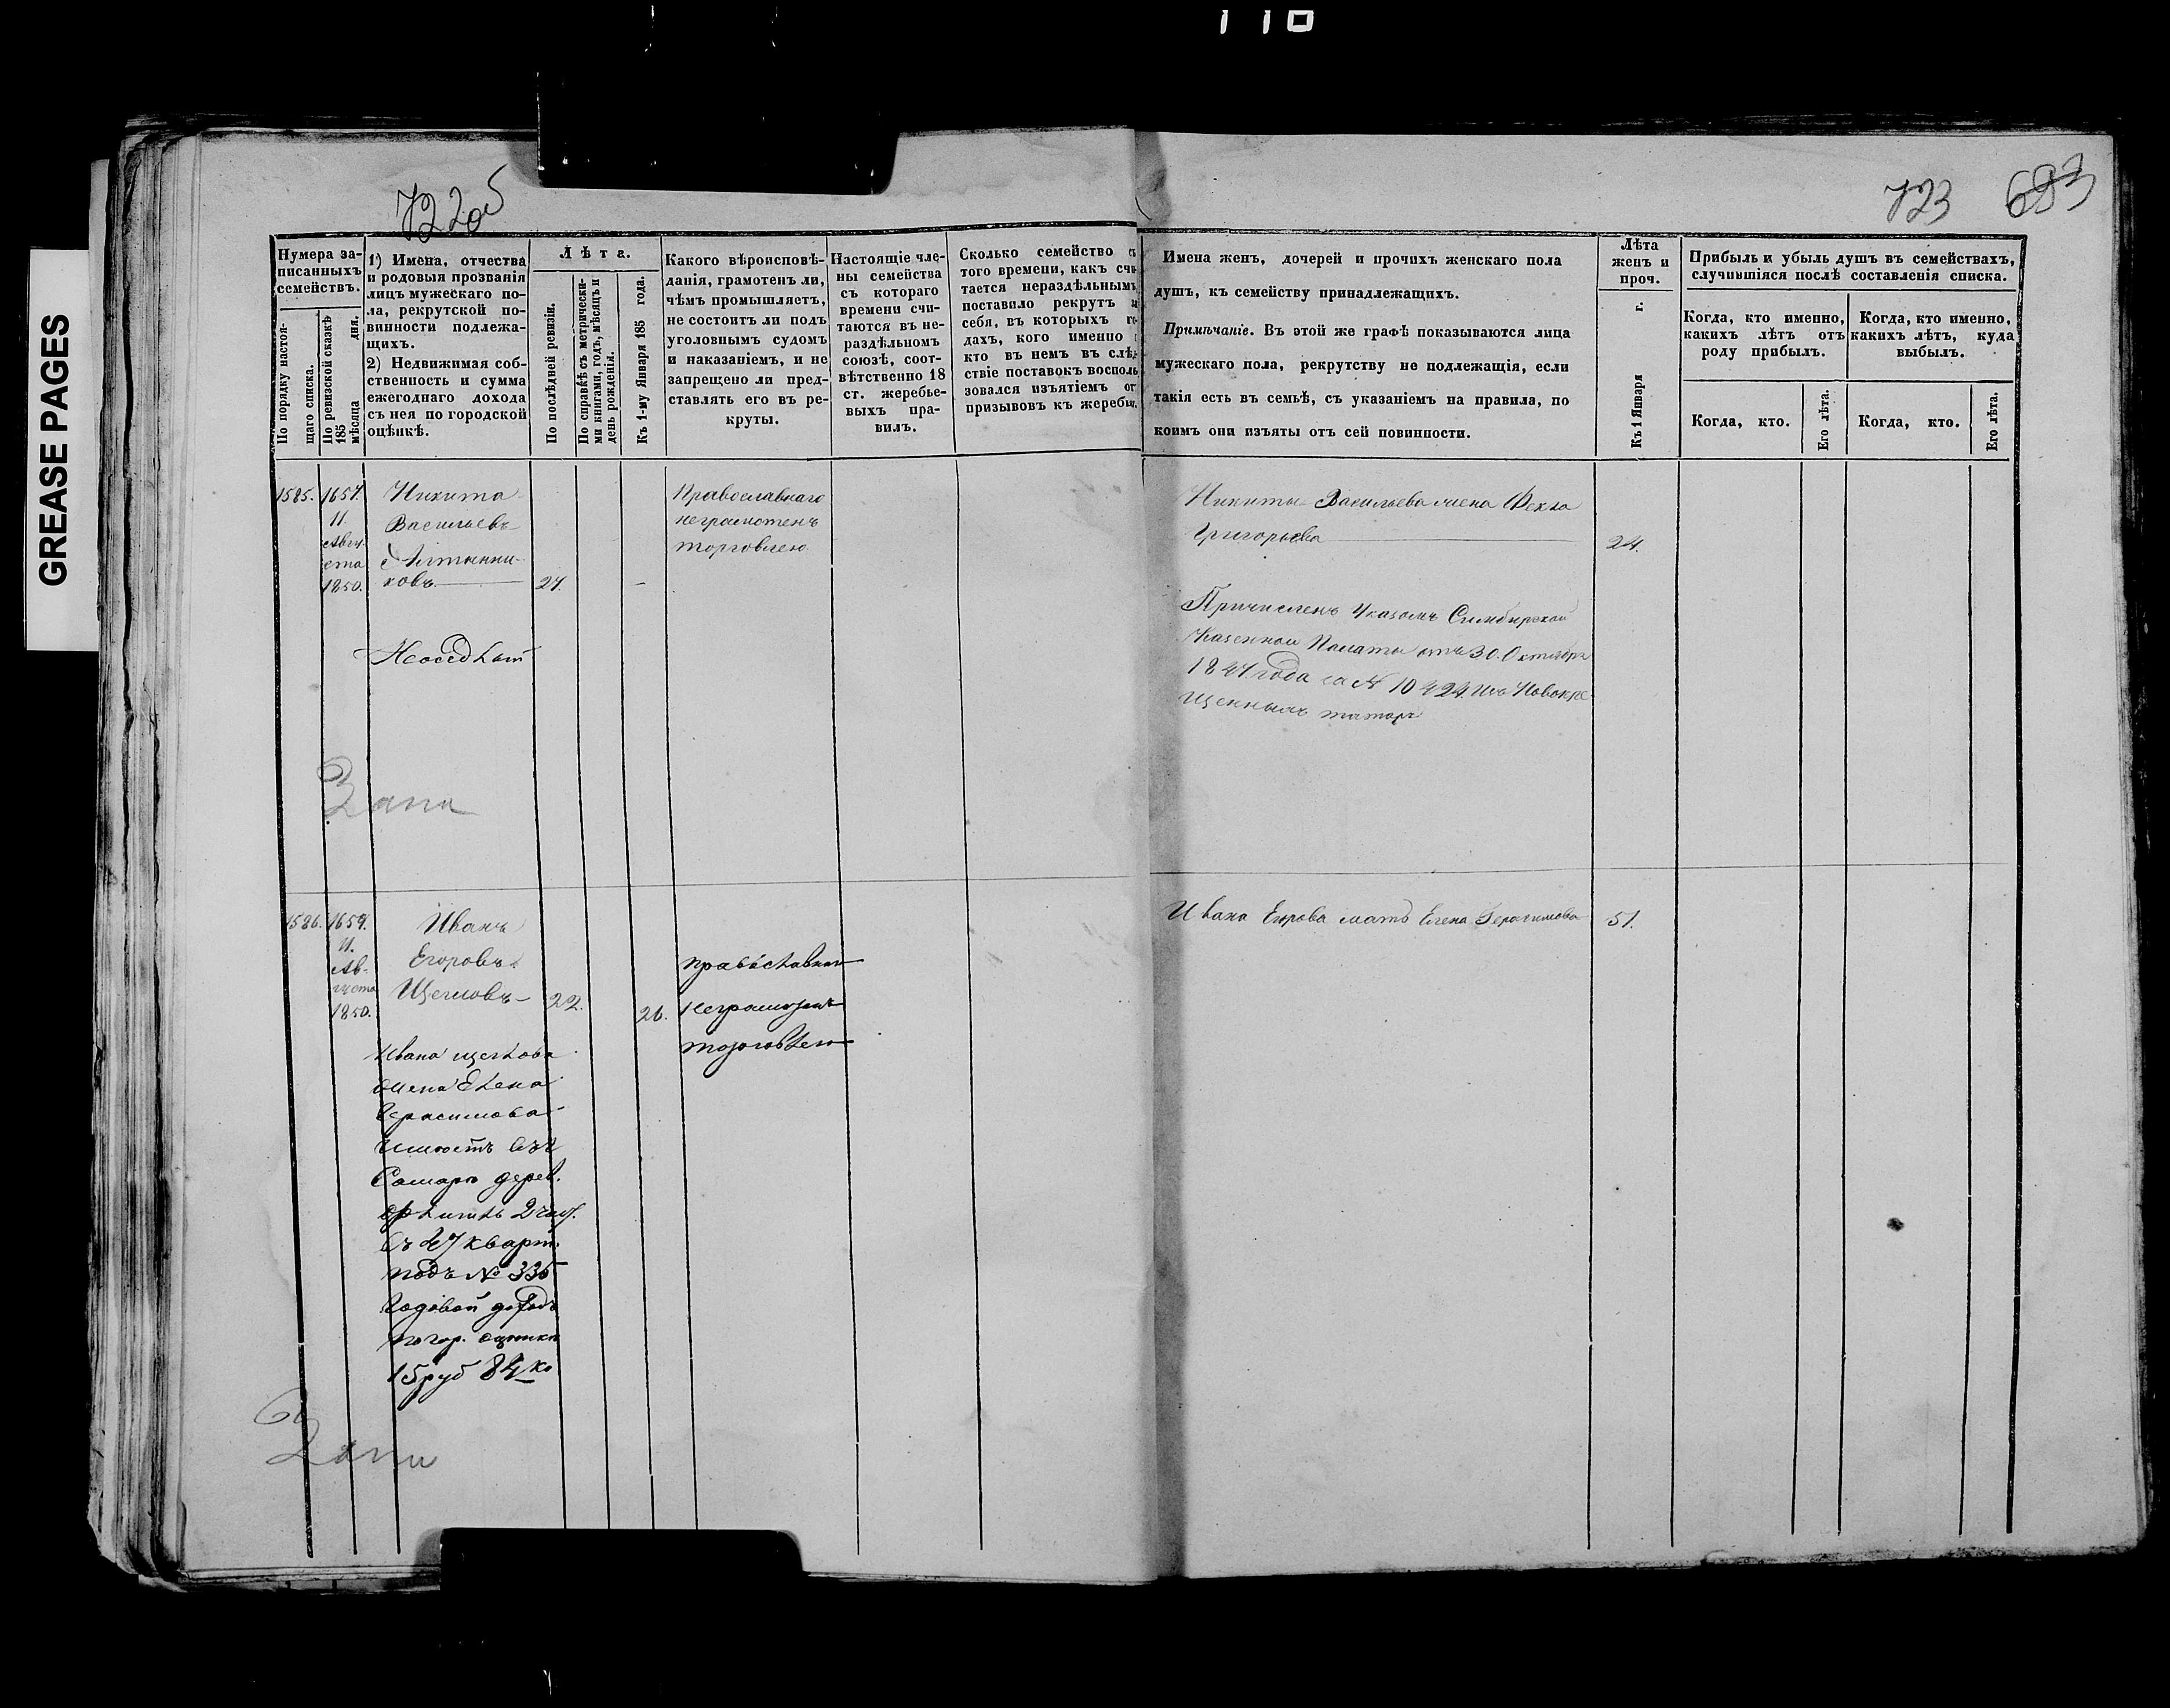 110
GREASE PAGES
722об
723 683
Нумера за-
писанныхъ
семействъ.
По порядку настоя-
щаго списка.
По ревизской сказкѣ
185 дня.
мѣсяца
1) Имена, отчества
и родовыя прозванія
лицъ мужескаго по-
ла, рекрутской по-
винности подлежа-
щихъ.
2) Недвижимая соб-
ственность и сумма
ежегоднаго дохода
съ нея по городской
оцѣнкѣ.
Лѣта.
По послѣдней ревизіи.
По справкѣ съ метрически-
ми книгами, годъ, мѣсяцъ и
день рожденія.
Къ 1-му Января 185 года.
Какого вѣроисповѣ-
данія, грамотенъ ли,
чѣмъ промышляетъ,
не состоитъ ли подъ
уголовнымъ судомъ
и наказаніемъ, и не
запрещено ли пред-
ставлять его въ ре-
круты.
Настоящіе чле-
ны семейства
съ котораго
времени счи-
таются въ не-
раздѣльномъ
союзѣ, соот-
вѣтственно 18
ст. жеребье-
выхъ пра-
вилъ.
Сколько семейство съ
того времени, какъ счи
тается нераздѣльнымъ
поставило рекрутъ и
себя, въ которыхъ го
дахъ, кого именно
кто въ немъ въ слѣд
ствіе поставокъ восполь
зовался изъятіемъ от
призывовъ къ жеребью.
Имена женъ, дочерей и прочихъ женскаго пола
душъ, къ семейству принадлежащихъ.
Примѣчаніе. Въ этой же графѣ показываются лица
мужескаго пола, рекрутству не подлежащія, если
такія есть въ семьѣ, съ указаніемъ на правила, по
коимъ они изъяты отъ сей повинности.
Лѣта
женъ и
проч.
Къ 1 Января г.
Прибыль и убыль душъ въ семействахъ,
случившіяся послѣ составленія списка.
Когда, кто именно,
какихъ лѣтъ отъ
роду прибылъ.
Когда, кто именно,
какихъ лѣтъ, куда
выбылъ.
Когда, кто.
Его лѣта.
Когда, кто.
Его лѣта.
1585. 1657.
11.
Авгу-
ста
1850.
Никита
Васильевъ
Алтынни-
ковъ 24. –
Православнаго
неграмотенъ
торговлею
Никиты Васильева жена Фекла
Григорьева 24.
Причисленъ Указомъ Симбирской
Казенной Палаты отъ 30. Октября
1847 года за № 10424. Изъ Новокре-
щенныхъ татаръ
1586. 1659.
11.
Ав-
густа
1850.
Иванъ
Егоровъ
Щегловъ 22. 26.
православнаго
неграмотенъ
торговлею
Ивана Егорова мать Елена Герасимова 51.
Ивана Щеглова
жена Елена
Герасимова
имѣетъ въ г.
Самарѣ дерев.
въ 47 кварт.
подъ № 335
Годовой доходъ
по гор. оцѣнкѣ
15 руб 84 ко